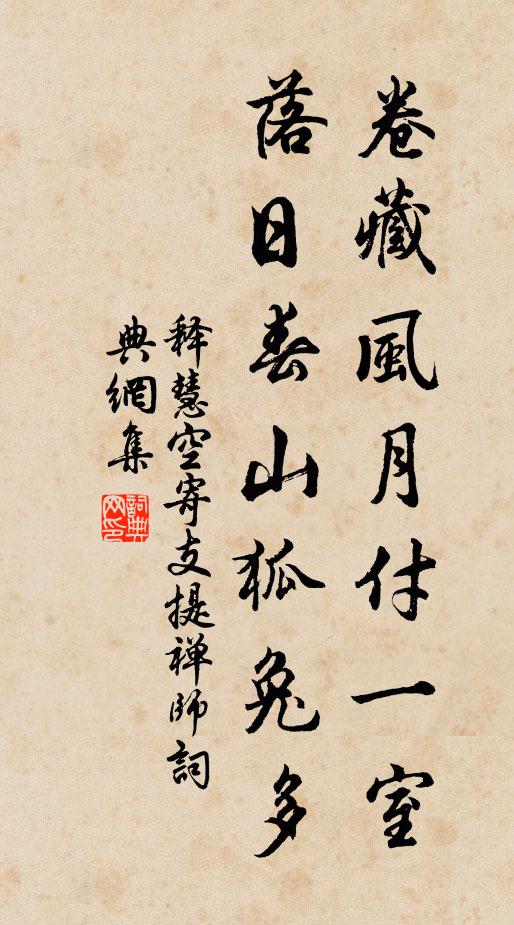 卷藏風月付一室
落日春山狐兔多
釋慧空寄支提禅師詞
典網集
詞典網印